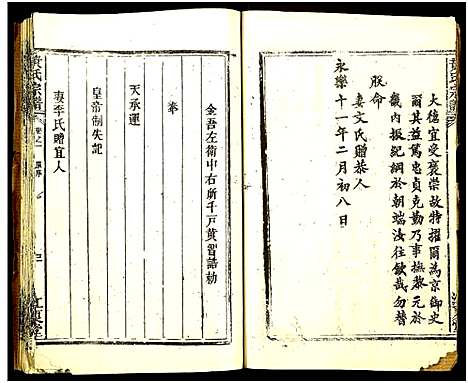 黃氏宗譜
大德宜受褒崇故特擢爾為京御史
爾其益篤忠貞克勤乃事撫黎元於
畿內振紀綱於朝端汝往欽哉勿替
朕命
妻文氏贈恭人
永樂十一年二月初八日
金吾左衛中右所千戶黃習誥勅
奉
天承運
皇帝制失記
妻李氏贈宜人
黃氏宗譜
卷之一